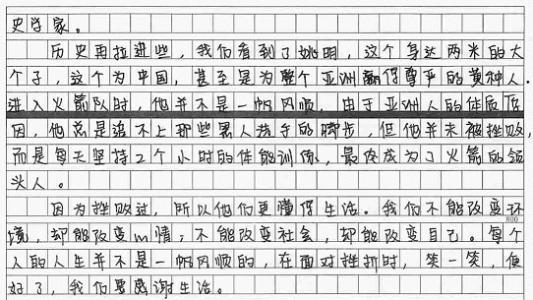 史学家。
历史再拉进些，我们看到了姚明，这个身达两米的大
个子，这个为中国，甚至是为整个亚洲赢得尊严的黄种人．
进入火箭队时，他并不是一帆风顺．由于亚洲人的体质原
因，他总是追不上那些黑人选手的脚步，但他并未被挫败，
而是每天坚持2个小时的体能训练，最终成为了火箭的领
头人。
因为挫败过，所以他们更懂得生活。我们不能改变环
800
境，却能改变心情；不能改变社会，却能改变自己。每个
人的人生并不是一帆风顺的，在面对挫折时，笑一笑，便
好了，我们要感谢生活。